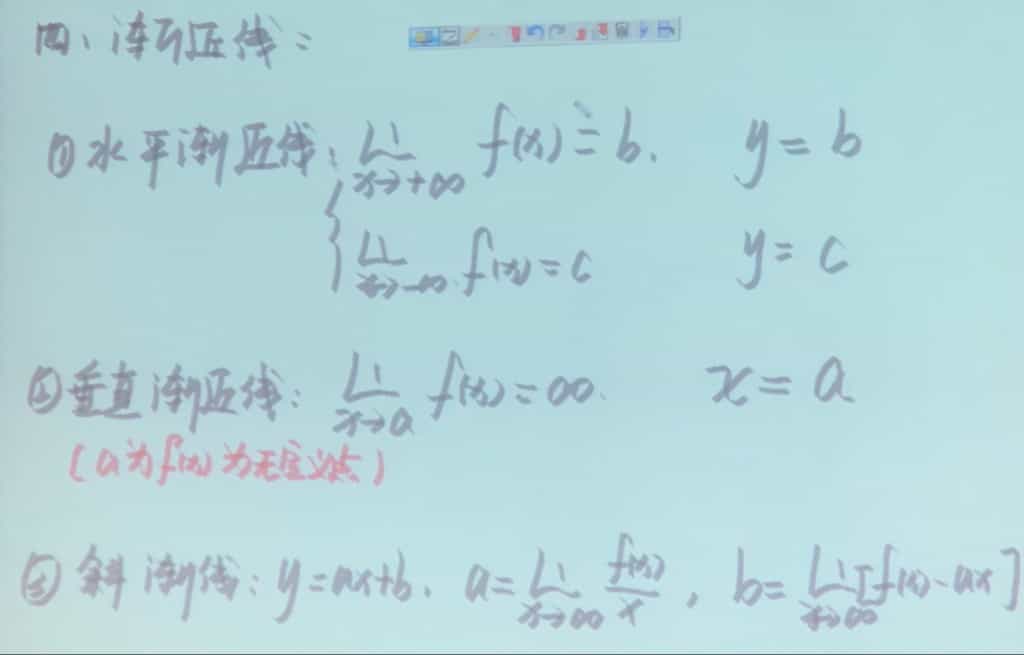 四、渐近线：
① 水平渐近线： Li x→+∞ f(x) = b. y = b
{ Li x→-∞ f(x) = c y = c
② 垂直渐近线： Li x→a f(x) = ∞. x = a
(a为f(x)为无定义点)
③ 斜渐线： y = ax+b. a = Li x→∞ f(x)/x , b = Li x→∞ [f(x) - ax]